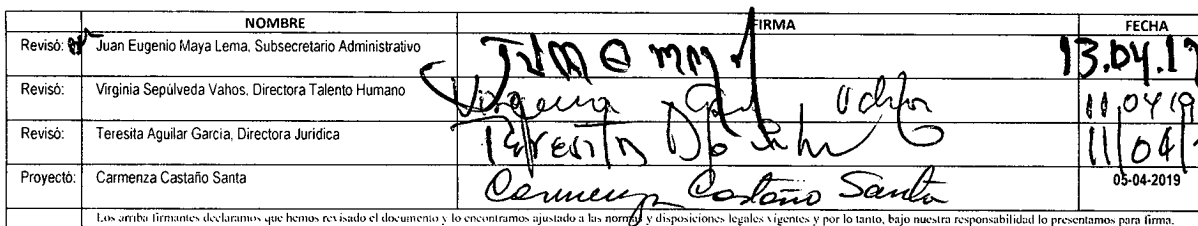 NOMBRE FIRMA FECHA
Revisó: Juan Eugenio Maya Lema, Subsecretario Administrativo 13.04.19
Revisó: Virginia Sepúlveda Vahos, Directora Talento Humano Virginia 11,0419
Revisó: Teresita Aguilar García, Directora Jurídica Teresita 11/04/
Proyectó: Carmenza Castaño Santa Carmenza Castaño Santa 05-04-2019
Los arriba firmantes declaramos que hemos revisado el documento y lo encontramos ajustado a las normas y disposiciones legales vigentes y por lo tanto, bajo nuestra responsabilidad lo presentamos para firma.